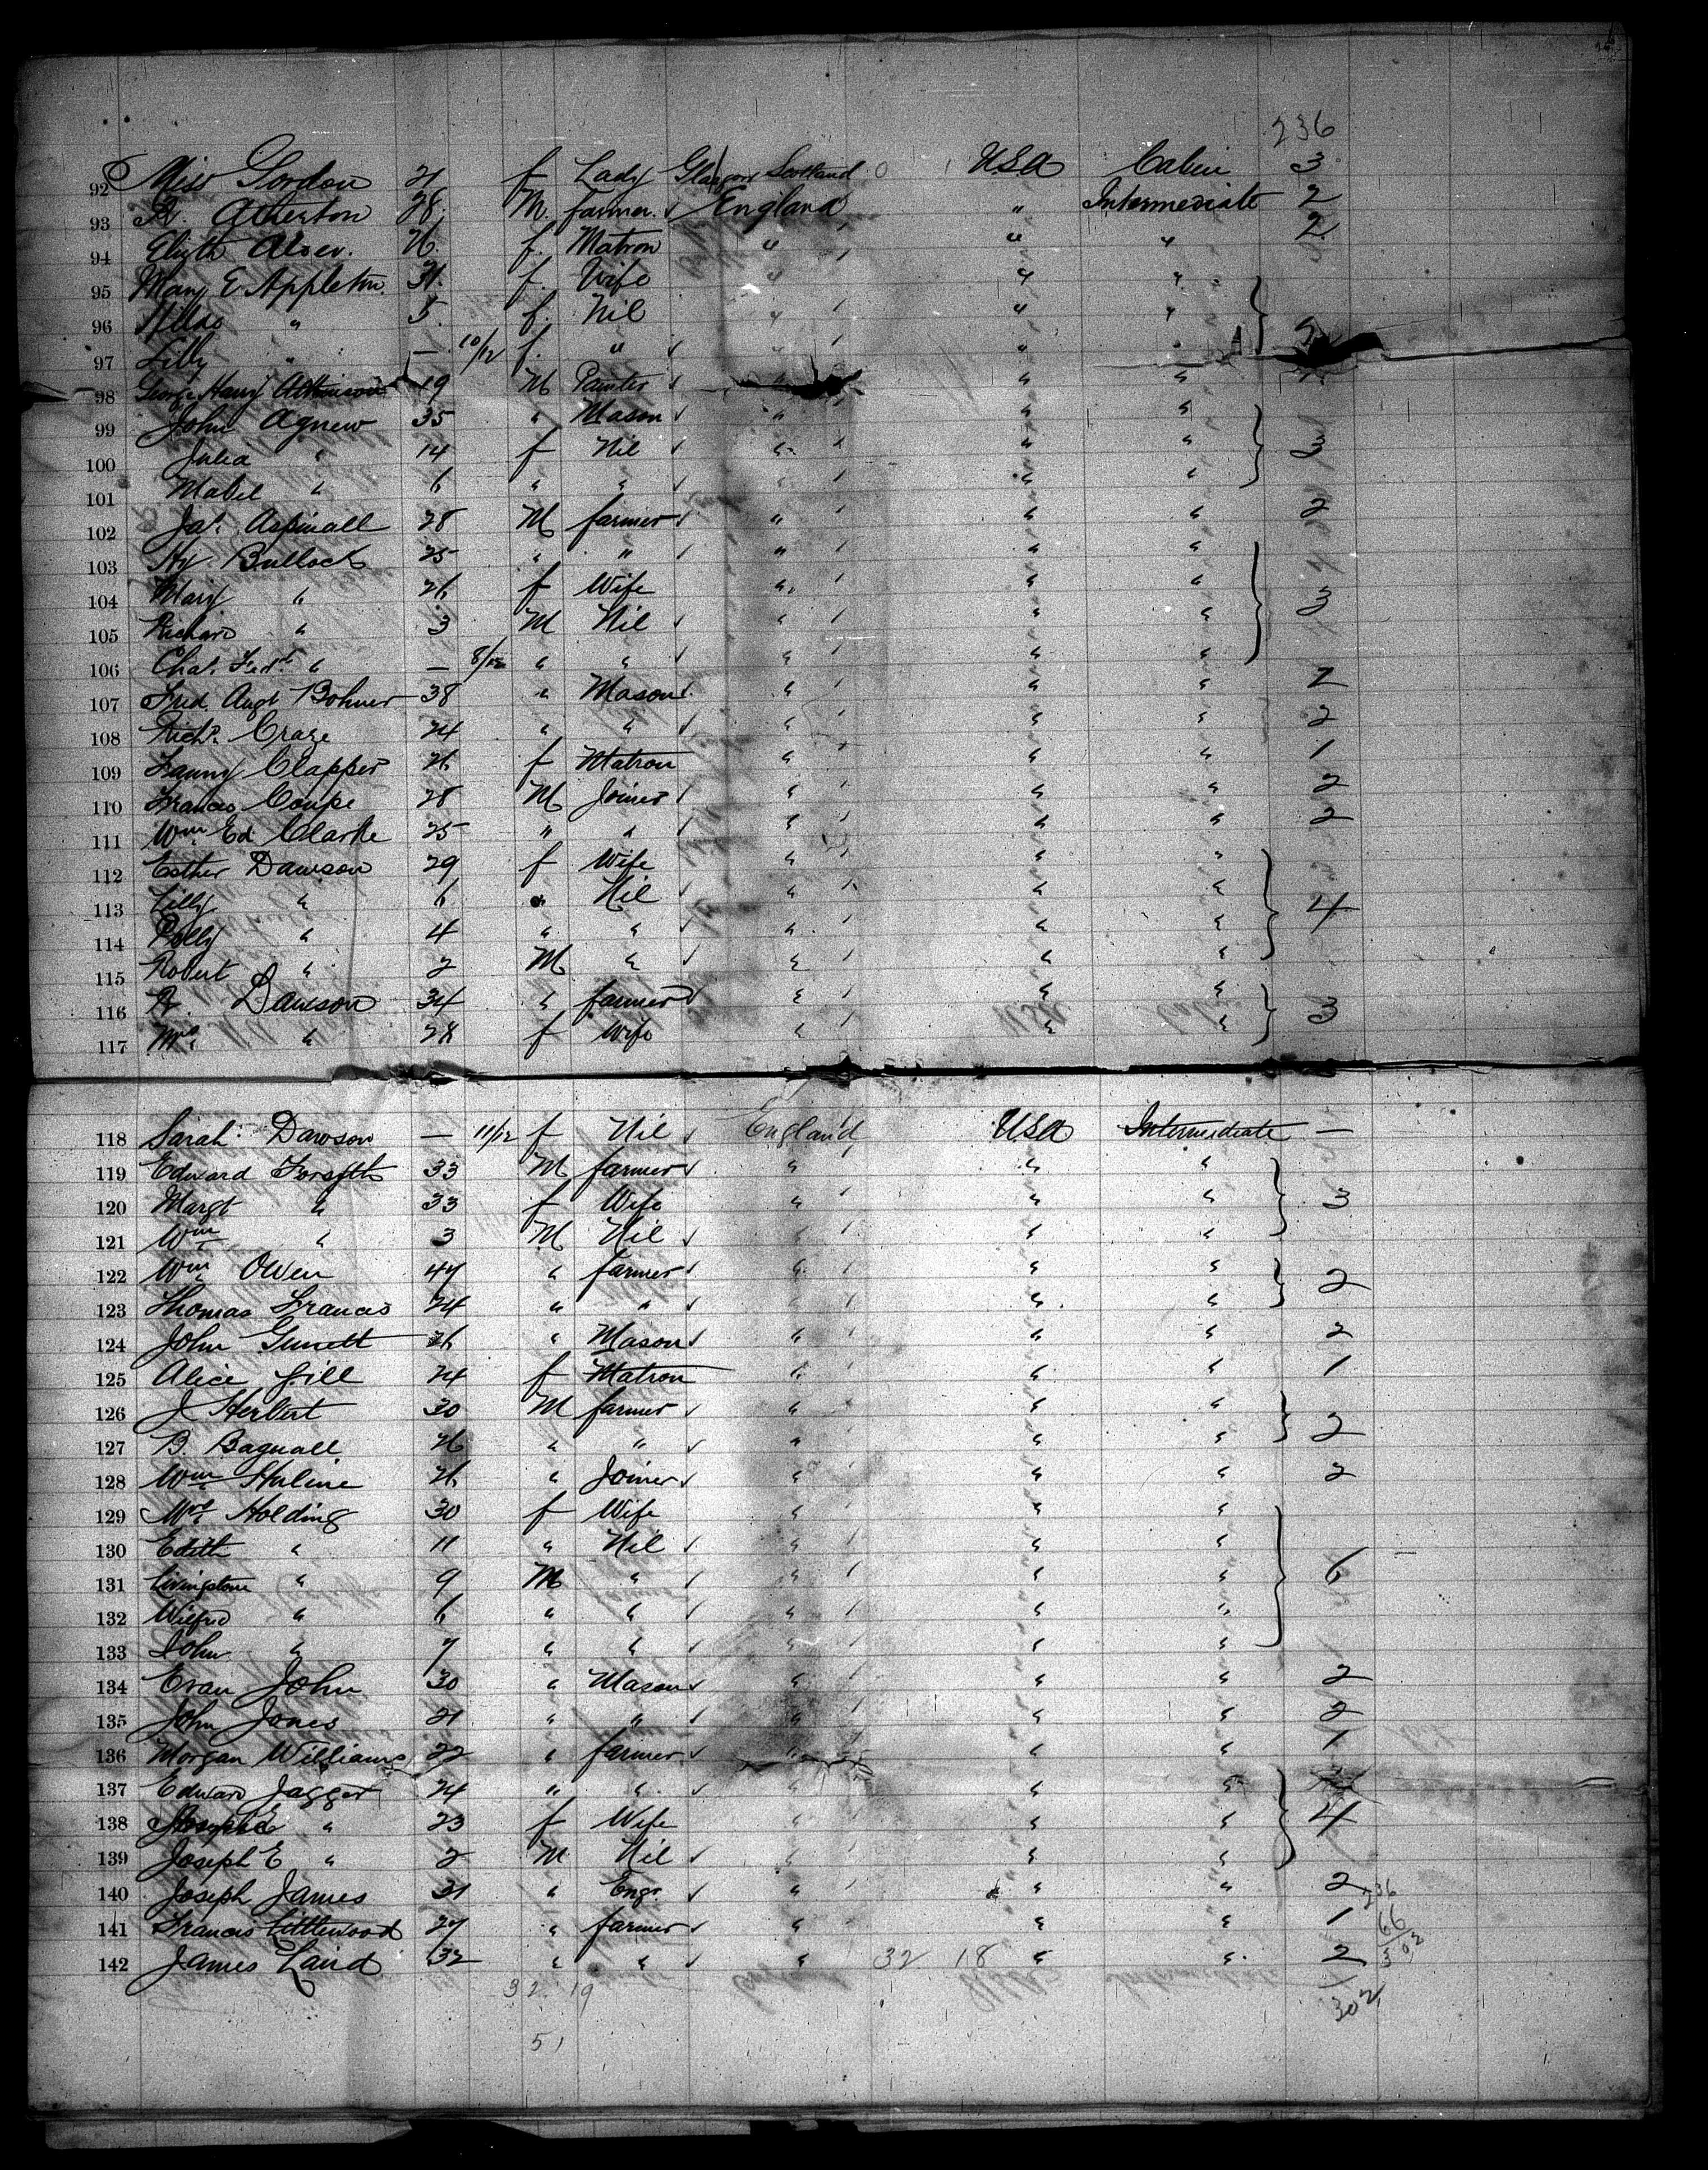 236
92 Miss Gordon 21 f Lady Glasgow Scotland USA Cabin 3
93 R. Atherton 28 M. farmer. England " Intermediate 2
94 Elizth 26 f. Matron " " " 2
95 Mary E Appleton. 31. f. Wife " " "
96 Hilda " 5. f. Nil " " "
97 Lilly " — 10/12 f. " " " "
98 George Henry Atkinson 19 M Painter " " "
99 John Agnew 35 " Mason " " "
100 Julia " 14 f Nil " " " 3
101 Mabel " 6 " " " " "
102 Jas. Aspinall 28 M farmer " " " 2
103 Hy. Bullock 25 " " " " "
104 Mary " 26 f Wife " " " 3
105 Richard " 3 M Nil " " "
106 Chas. Fredk " — 8/12 " " " " "
107 Fred. Augt Bohner 38 " Mason " " " 2
108 Richd. Craze 24 " " " " " 2
109 Fanny Clapper 26 f Matron " " " 1
110 Francis Coupe 28 M Joiner " " " 2
111 Wm Ed Clarke 25 " " " " " 2
112 Esther Dawson 29 f Wife " " "
113 Lilly " 6 " Nil " " " 4
114 Polly " 4 " " " " "
115 Robert " 2 M " " " "
116 R. Dawson 34 " farmer " " " 3
117 Mrs " 28 f Wife " " "
118 Sarah Dawson — 11/12 f Nil England USA Intermediate —
119 Edward Forsyth 33 M farmer " " "
120 Margt " 33 f Wife " " " 3
121 Wm " 3 M Nil " " "
122 Wm Owen 47 " farmer " " " 2
123 Thomas Francis 24 " " " " "
124 John 26 " Mason " " " 2
125 Alice Gill 24 f Matron " " " 1
126 J Herbert 30 M farmer " " " 2
127 B. Bagnall 26 " " " " "
128 Wm 26 " Joiner " " " 2
129 Mrs Holding 30 f Wife " " "
130 Edith " 11 " Nil " " "
131 Livingstone " 9 M " " " " 6
132 Wilfred " 6 " " " " "
133 John " 7 " " " " "
134 Evan John 30 " Mason " " " 2
135 John Jones 21 " " " " " 2
136 Morgan Williams 22 " farmer " " " 1
137 Edward Jagger 24 " " " " "
138 " 23 f Wife " " " 4
139 Joseph E " 2 M Nil " " "
140 Joseph James 31 " Engr. " " " 2 236
141 Francis Littlewood 27 " farmer " " " 1 66
142 James Laird 32 " " " 32 18 " " 2 302
32 19 302
51